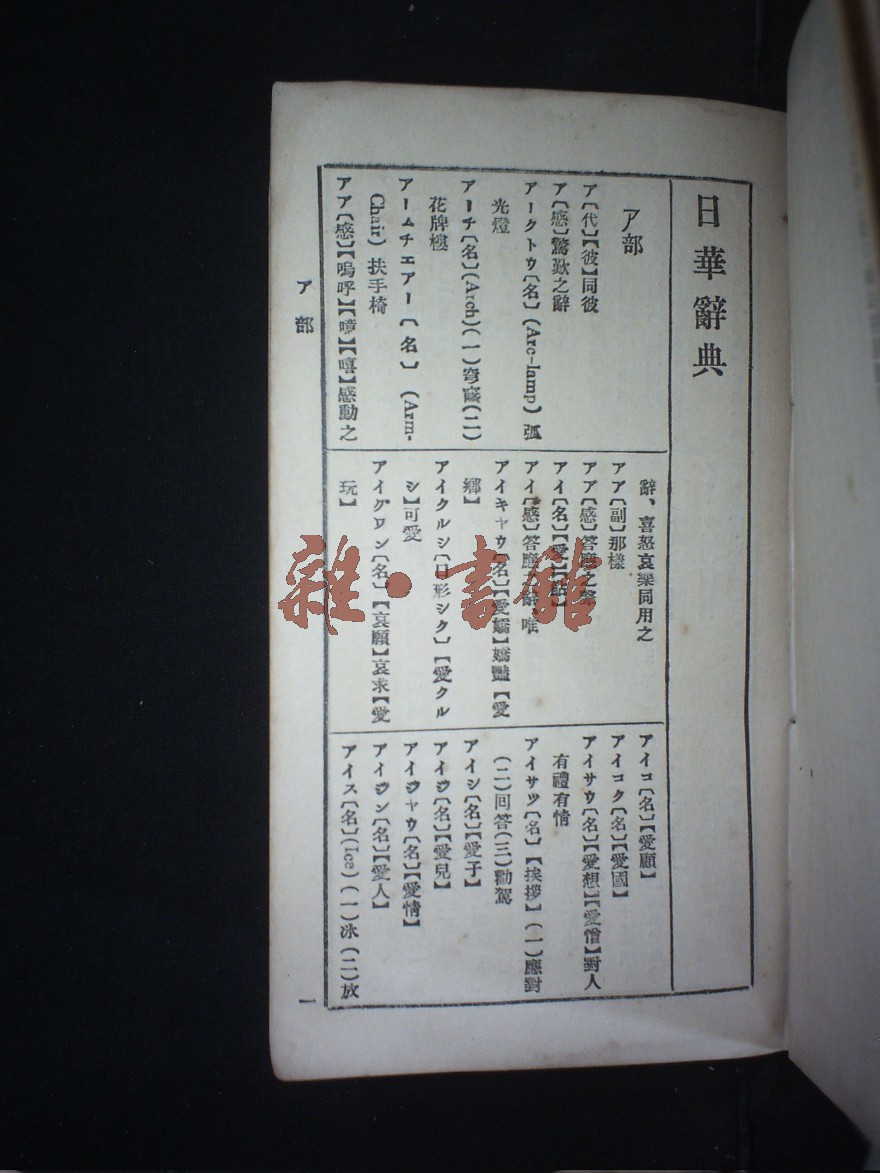 日華辭典
ア部
ア〔代〕【彼】同彼
ア〔感〕驚歎之辭
アークトウ〔名〕(Arc-lamp) 弧
光燈
アーチ〔名〕(Arch)(一)穹窿(二)
花牌樓
アームチエアー〔名〕 (Arm-
Chair) 扶手椅
アア〔感〕【嗚呼】【噫】【嘻】感動之
辭、喜怒哀樂同用之
アア〔副〕那樣
アア〔感〕答應之聲
アイ〔名〕【愛】
アイ〔感〕答應辭 唯
アイキヤウ〔名〕【愛嬌】嬌豔【愛
鄕】
アイクルシ〔日形シク〕【愛クル
シ】可愛
アイクワン〔名〕【哀願】哀求【愛
玩】
アイコ〔名〕【愛顧】
アイコク〔名〕【愛國】
アイサウ〔名〕【愛想】【愛憎】對人
有禮有情
アイサツ〔名〕【挨拶】(一)應對
(二)回答(三)勸駕
アイシ〔名〕【愛子】
アイジ〔名〕【愛兒】
アイジヤウ〔名〕【愛情】
アイジン〔名〕【愛人】
アイス〔名〕(Ice)(一)冰(二)放
ア部
一
雜·書館